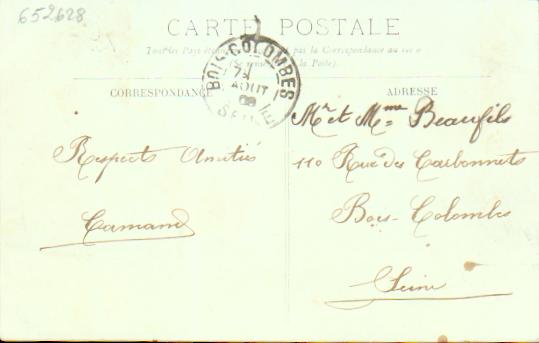 652628
CARTE POSTALE
Tous les Pays étrangers pas la Correspondance au recto
(Se rense à la Poste).
BOIS-COLOMBES
7 AOUT 09
SEINE
CORRESPONDANCE
ADRESSE
Respects Amitiés
Camand
Mr et Mme Beaufils
110 Rue des Carbonnets
Bois-Colombes
Seine